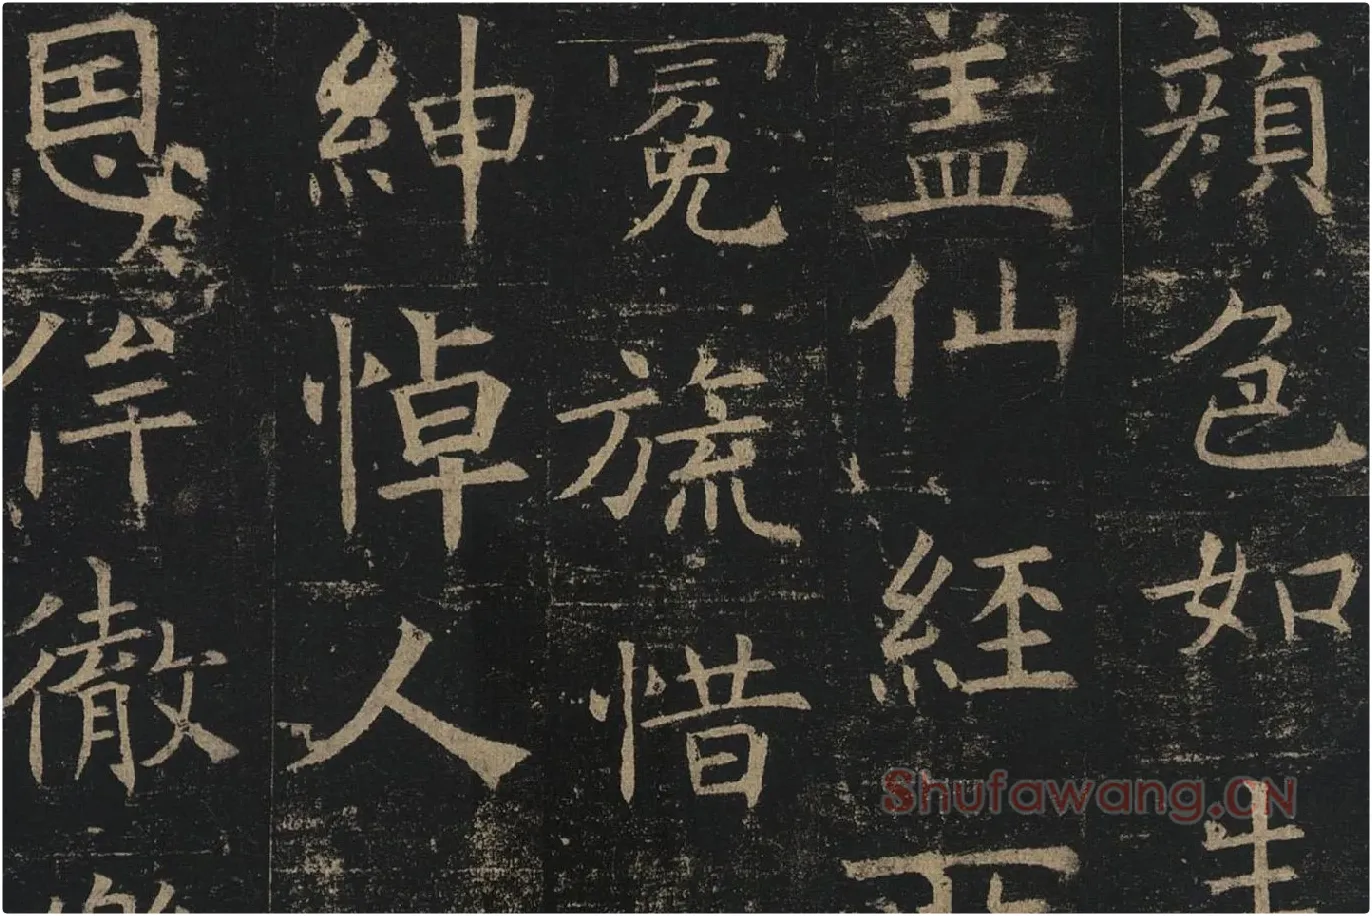 顔色如生
盖仙經
冕旒惜
紳悼人
恩侔徹
Shufawang.CN